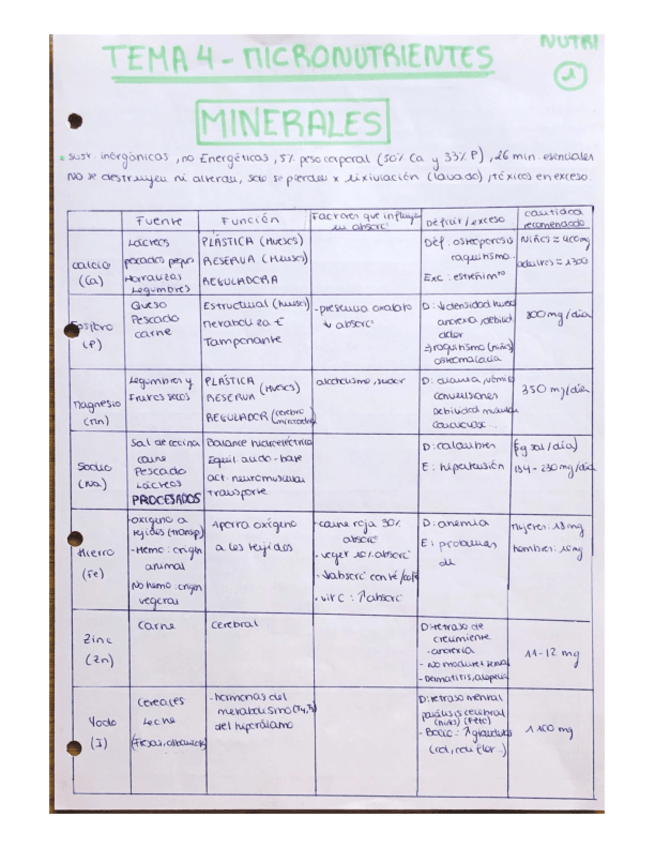 NUTRI
1
TEMA 4 - MICRONUTRIENTES
MINERALES
Sust. inorgánicas, no Energéticas, 5% peso corporal (50% Ca y 33% P), 26 min. esenciales
No se destruyen ni alteran, solo se pierden x lixiviación (lavado), tóxicos en exceso.
Fuente
Función
Factores que influyen
en absorc
Déficit/exceso
cantidad
recomendada
calcio
(Ca)
Lácteos
pescados peqn
Hortalizas
Legumbres
PLÁSTICA (Huesos)
RESERVA (Huesos)
REGULADORA
Def. osteoporosis
raquitismo.
Exc: estreñimto
Niños = 400mg
adultos = 1300
Fósforo
(P)
Queso
Pescado
carne
Estructural (hueso)
Metaboliza E
Tamponante
- presencia oxalato
↓ absorc
D: ↓ densidad hueso
anorexia, debilid
dolor
raquitismo (niños)
osteomalacia
800 mg/dia
Magnesio
Legumbres y
frutos secos
PLÁSTICA (Huesos)
RESERVA
REGULADOR (cerebro
alcoholismo, sudor
convulsiones
Debilidad muscula
350 mg/dia
Sodio
(Na)
Sal de cocina
carne
Pescado
Lácteos
PROCESADOS
Balance hidroeléctrico
Equil. acido-base
act. neuromuscular
Transporte
D: calambres
E: hipertensión
(5g sal/día)
184-230 mg/dia
Hierro
(Fe)
-oxígeno a
tejidos (transp)
-Hemo: origen
animal
No hemo: origen
vegetal
Aporta oxígeno
a los tejidos
-carne roja 30%
absorc
- veget 10% absorc
- ↓absorc con té/café
- vit C: ↑absorc
D: anemia
E: problemas
de
Mujeres: 18mg
hombres: 10mg
Zinc
(Zn)
carne
cerebral
D: retraso de
crecimiento
-anorexia
- No madurez sexual
-Dermatitis, alopecia
11-12 mg
Yodo
(I)
cereales
Leche
-hormonas del
metabolismo (T4, T3)
del hipotálamo
D: retraso mental
parálisis cerebral
(feto)
- Bocio: ↑glándula
(col, coliflor..)